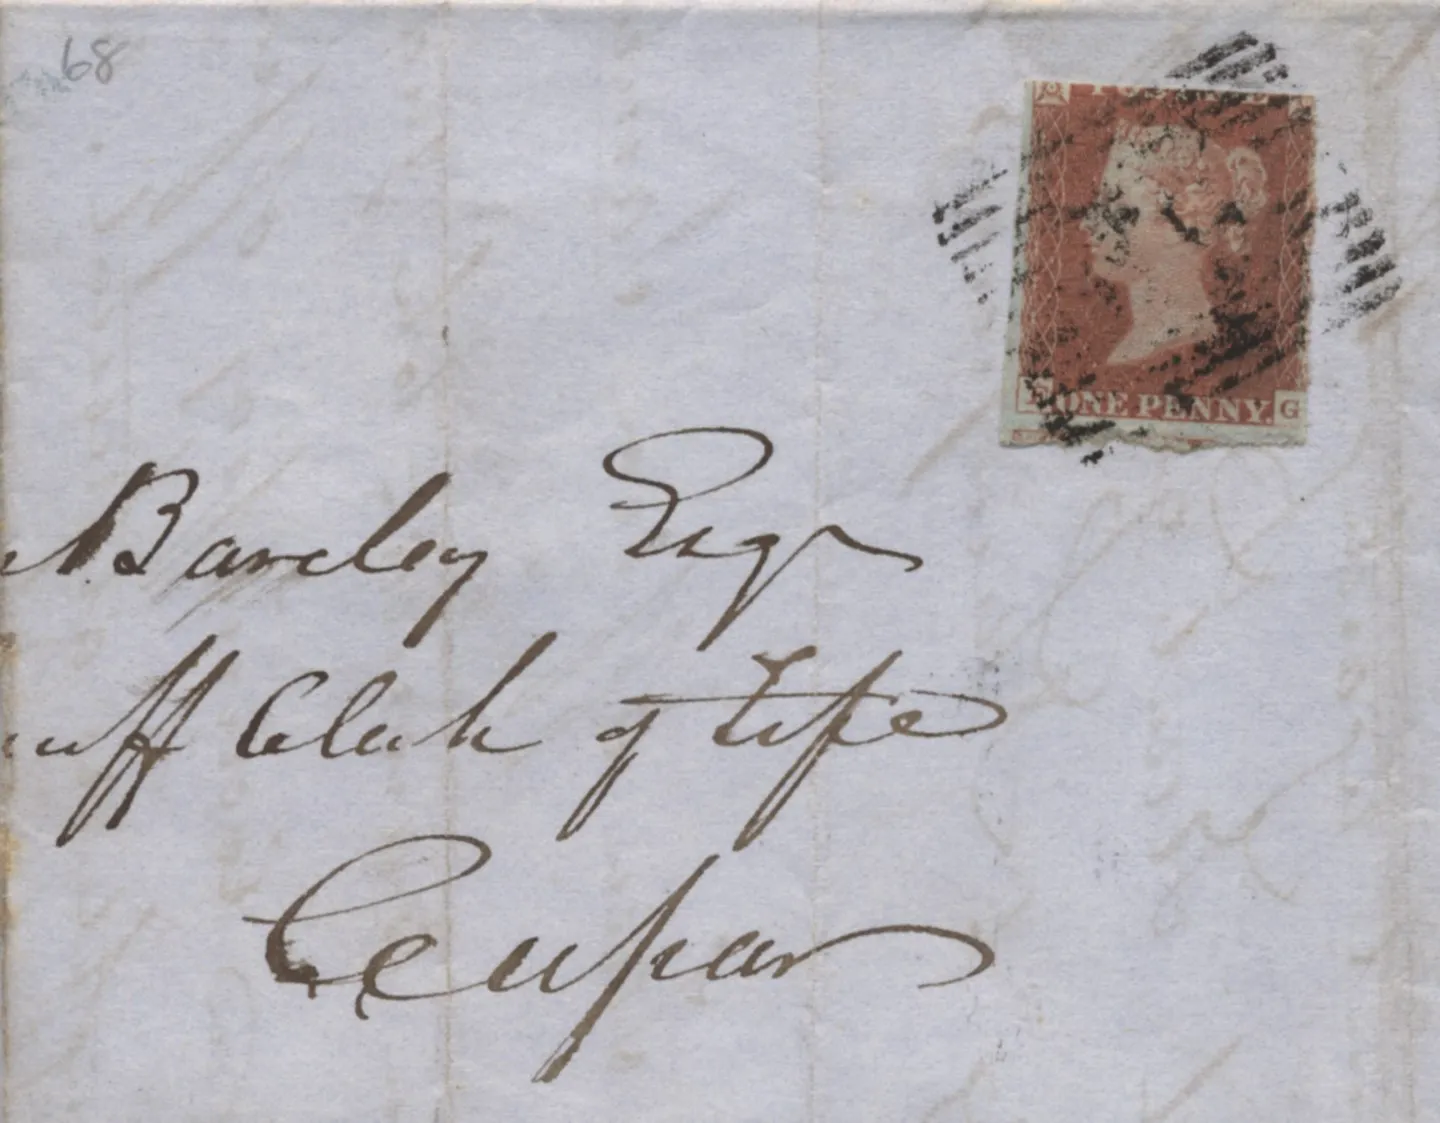 68
POSTAGE
ONE PENNY.
G
Barclay Esqr
uff Clerk of Fife
Cupar